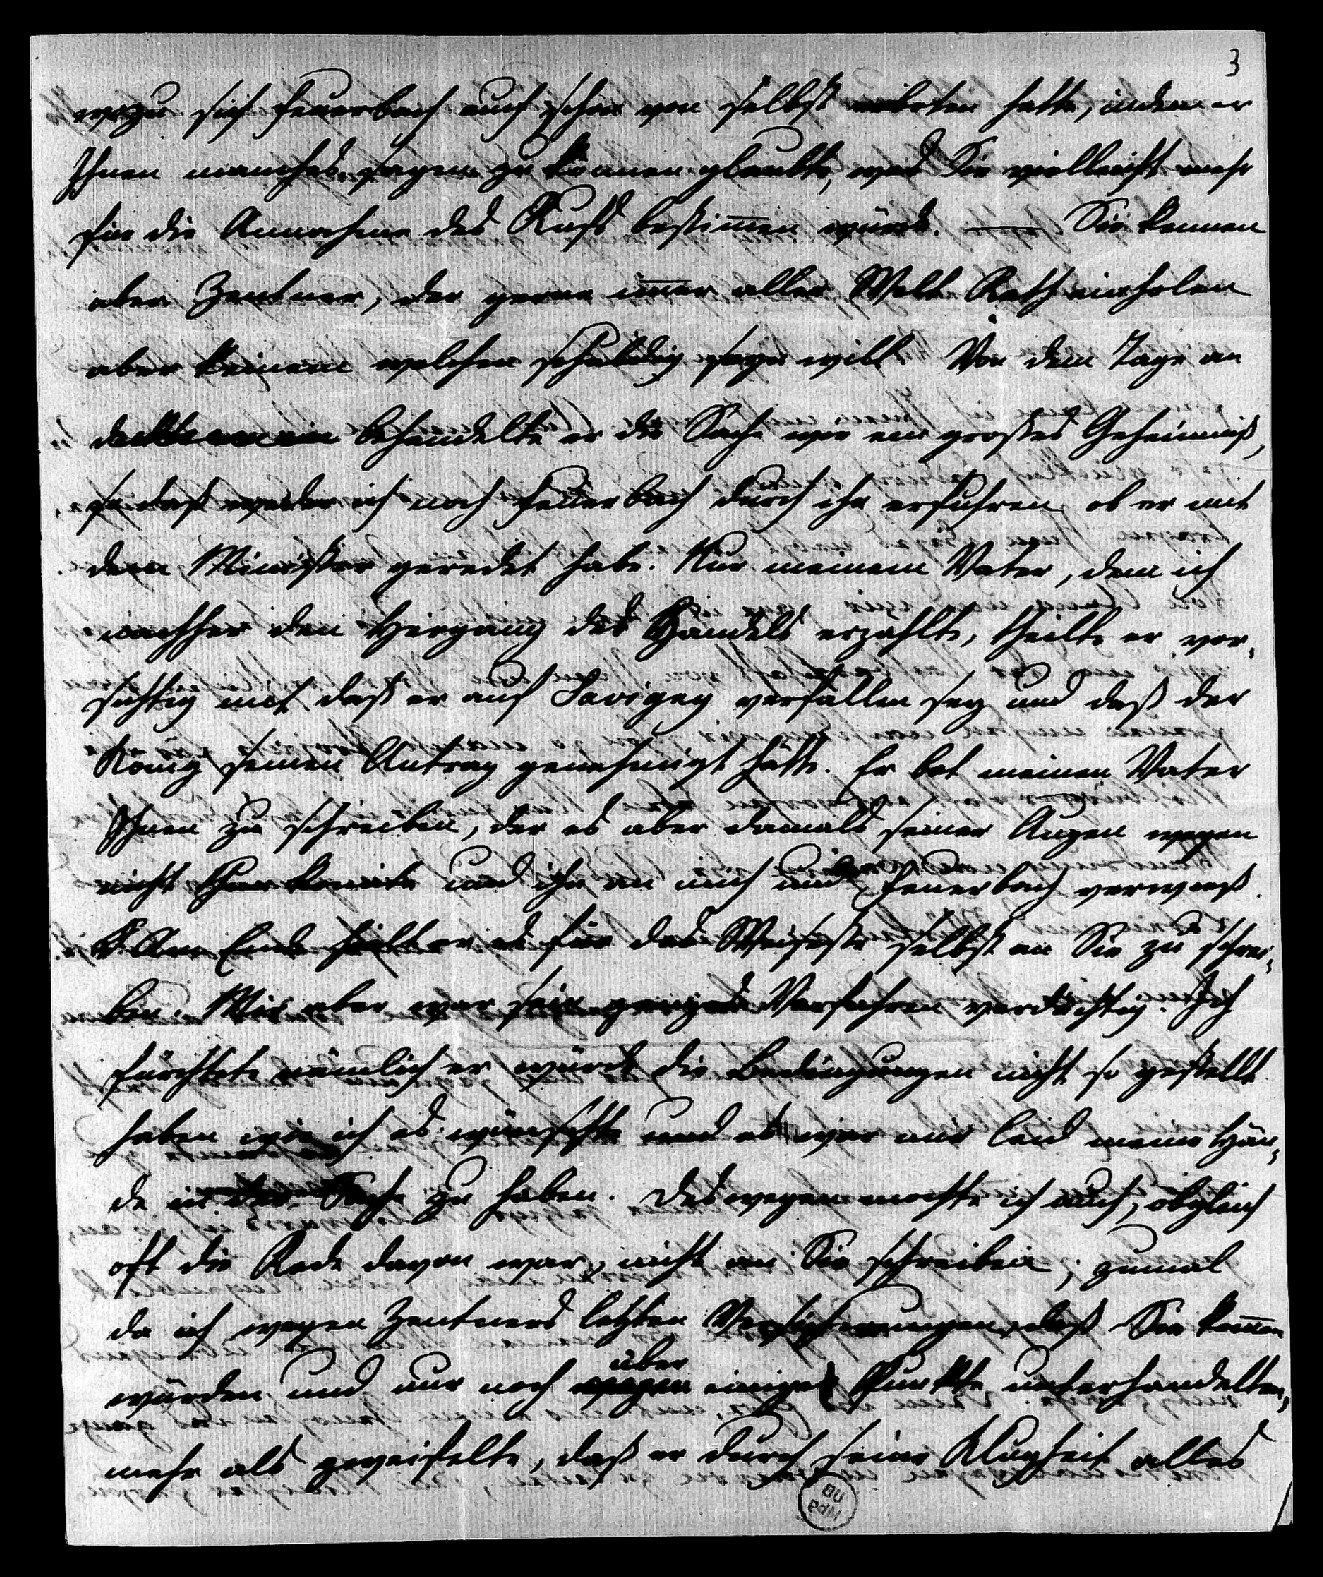 3
wozu sich Feuerbach auch schon von selbst erboten hatte, indem er
Ihnen manches sagen zu können glaubte, was Sie vielleicht mehr
für die Annahme des Rufs bestimmen würde. — Sie kennen
aber Zentner, der gerne immer aller Welt Rath einholen
aber keinem welchen schuldig seyn will. Von dem Tage an
behandelte er die Sache wie ein großes Geheimniß,
so daß weder ich noch Feuerbach durch ihn erfuhren, ob er mit
dem Minister geredet habe. Nur meinem Vater, dem ich
nachher den Hergang des Handels erzählte, theilte er vor-
sichtig mit daß er auf Savigny verfallen sey und daß der
König seinen Antrag genehmigt hätte. Er bat meinen Vater
Ihnen zu schreiben, der es aber damals seiner Augen wegen
nicht thun konnte und ihn an mich und Feuerbach verwieß.
Am Ende hielt er es für das Weiseste selbst an Sie zu schrei-
ben. Mir aber war sein ganzes Verfahren verdächtig. Ich
fürchtete nämlich er würde die Bedingungen nicht so gestellt
haben wie ich es wünschte und es war mir leid meine Hän-
de in der Sache zu haben. Deswegen mochte ich auch, obgleich
oft die Rede davon war, nicht an Sie schreiben, zumal
da ich wegen Zentners letzten Versicherungen, daß Sie kommen
würden und nur noch über einige Punkte unterhandelten,
mehr als zweifelte, daß er durch seine Klugheit alles
UB
Mbg